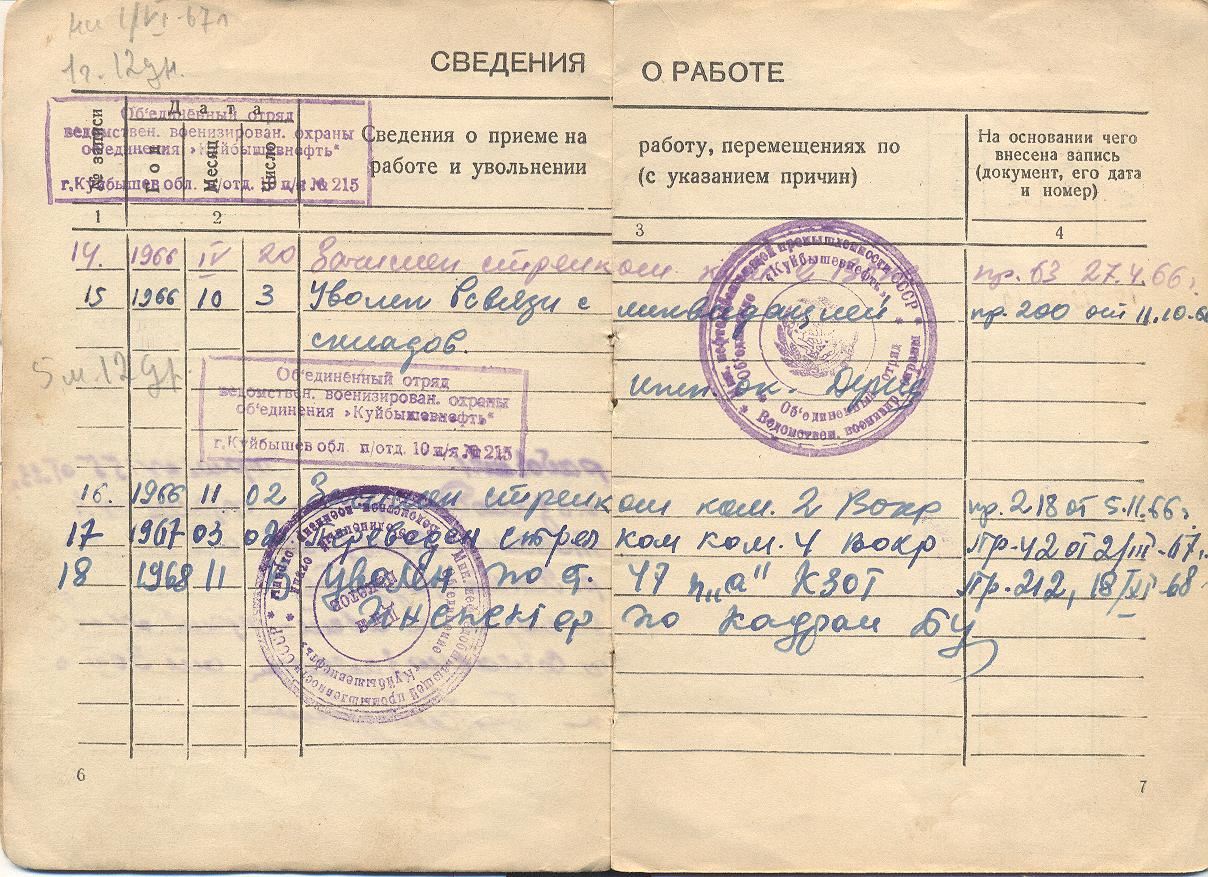 1г. 12дн.
СВЕДЕНИЯ О РАБОТЕ
№ записи
Дата
Год
Месяц
Число
Сведения о приеме на работу, перемещениях по
работе и увольнении (с указанием причин)
На основании чего
внесена запись
(документ, его дата
и номер)
Об'единенный отряд
ведомствен. военизирован. охраны
об'единения „Куйбышевнефть“
г. Куйбышев обл. п/отд. 10 п/я № 215
1 2 3 4
14. 1966 IV 20 Зачислен стрелком пр. 63 27.4.66г.
15 1966 10 3 Уволен всвязи с ликвидацией пр. 200 от 11.10.66
складов.
инсп. ок.
5 м. 12 дн.
Об'единенный отряд
ведомствен. военизирован. охраны
об'единения „Куйбышевнефть“
г. Куйбышев обл. п/отд. 10 п/я № 215
Об'единение „Куйбышевнефть“
Об'единенный отряд
Ведомствен. военизир. охраны
16. 1966 11 02 Зачислен стрелком ком. 2 Вокр пр. 218 от 5.11.66г.
17 1967 03 02 Переведен стрелком ком. 4 Вокр Пр. 42 от 2/III-67г.
18 1968 11 Уволен по ст. 47 п „а“ КЗОТ Пр. 212, 18/XI-68
Инспектор по кадрам
6
7